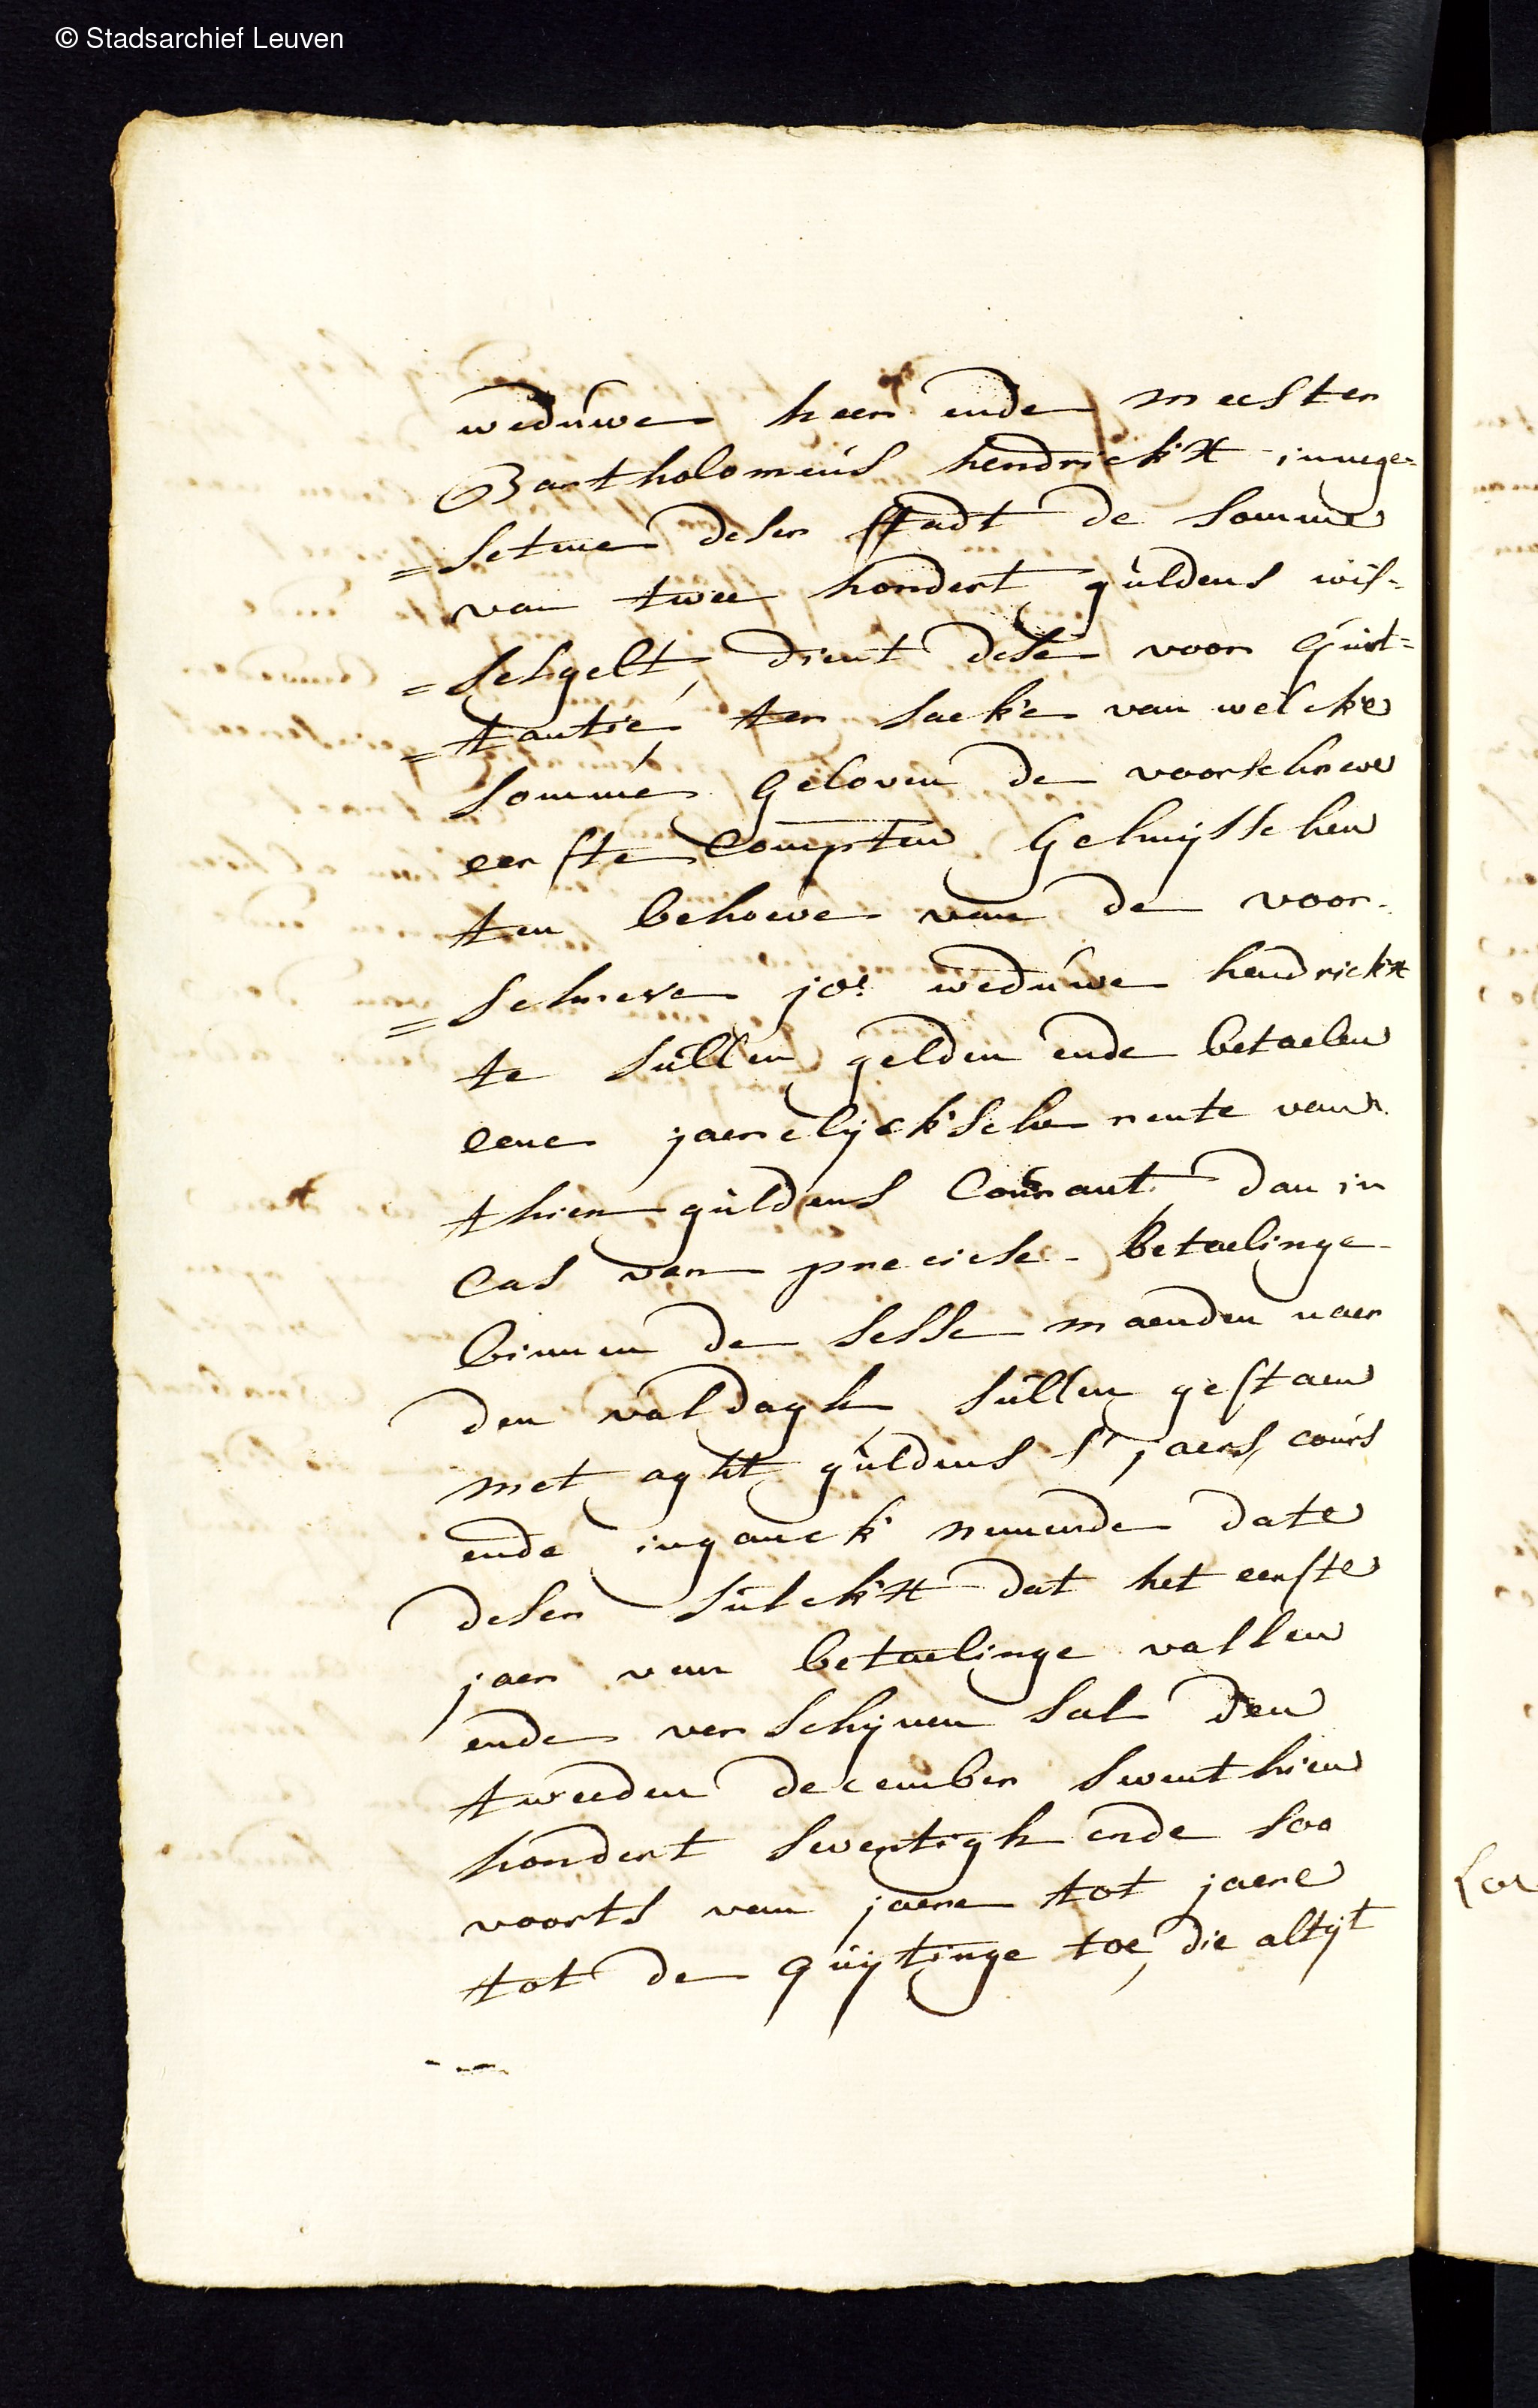 © Stadsarchief Leuven
weduwe heer ende meester
Bartholomeus hendrickx innege=
=setene deser stadt de somme
van twee hondert guldens wis=
=selgelt, dient dese voor quit=
=tantie, ter saeke van welcke
somme geloven de voorschreve
eerste Compten Gehuysschen
ten behoeve van de voor-
=schreve jo.e weduwe hendrickx
te sullen gelden ende betaelen
eene jaerelycksche rente van
thien guldens Courant, dan in
cas van preciese betaelinge
binnen de sesse maenden naer
den valdagh, sullen gestaen
met aght guldens s' jaers, cours
ende inganck nemende date
deser sulckx dat het eerste
jaer van betaelinge vallen
ende verschynen sal den
tweeden december seventhien
hondert seventigh ende soo
voorts van jaere tot jaere
tot de quytinge toe, die altyt